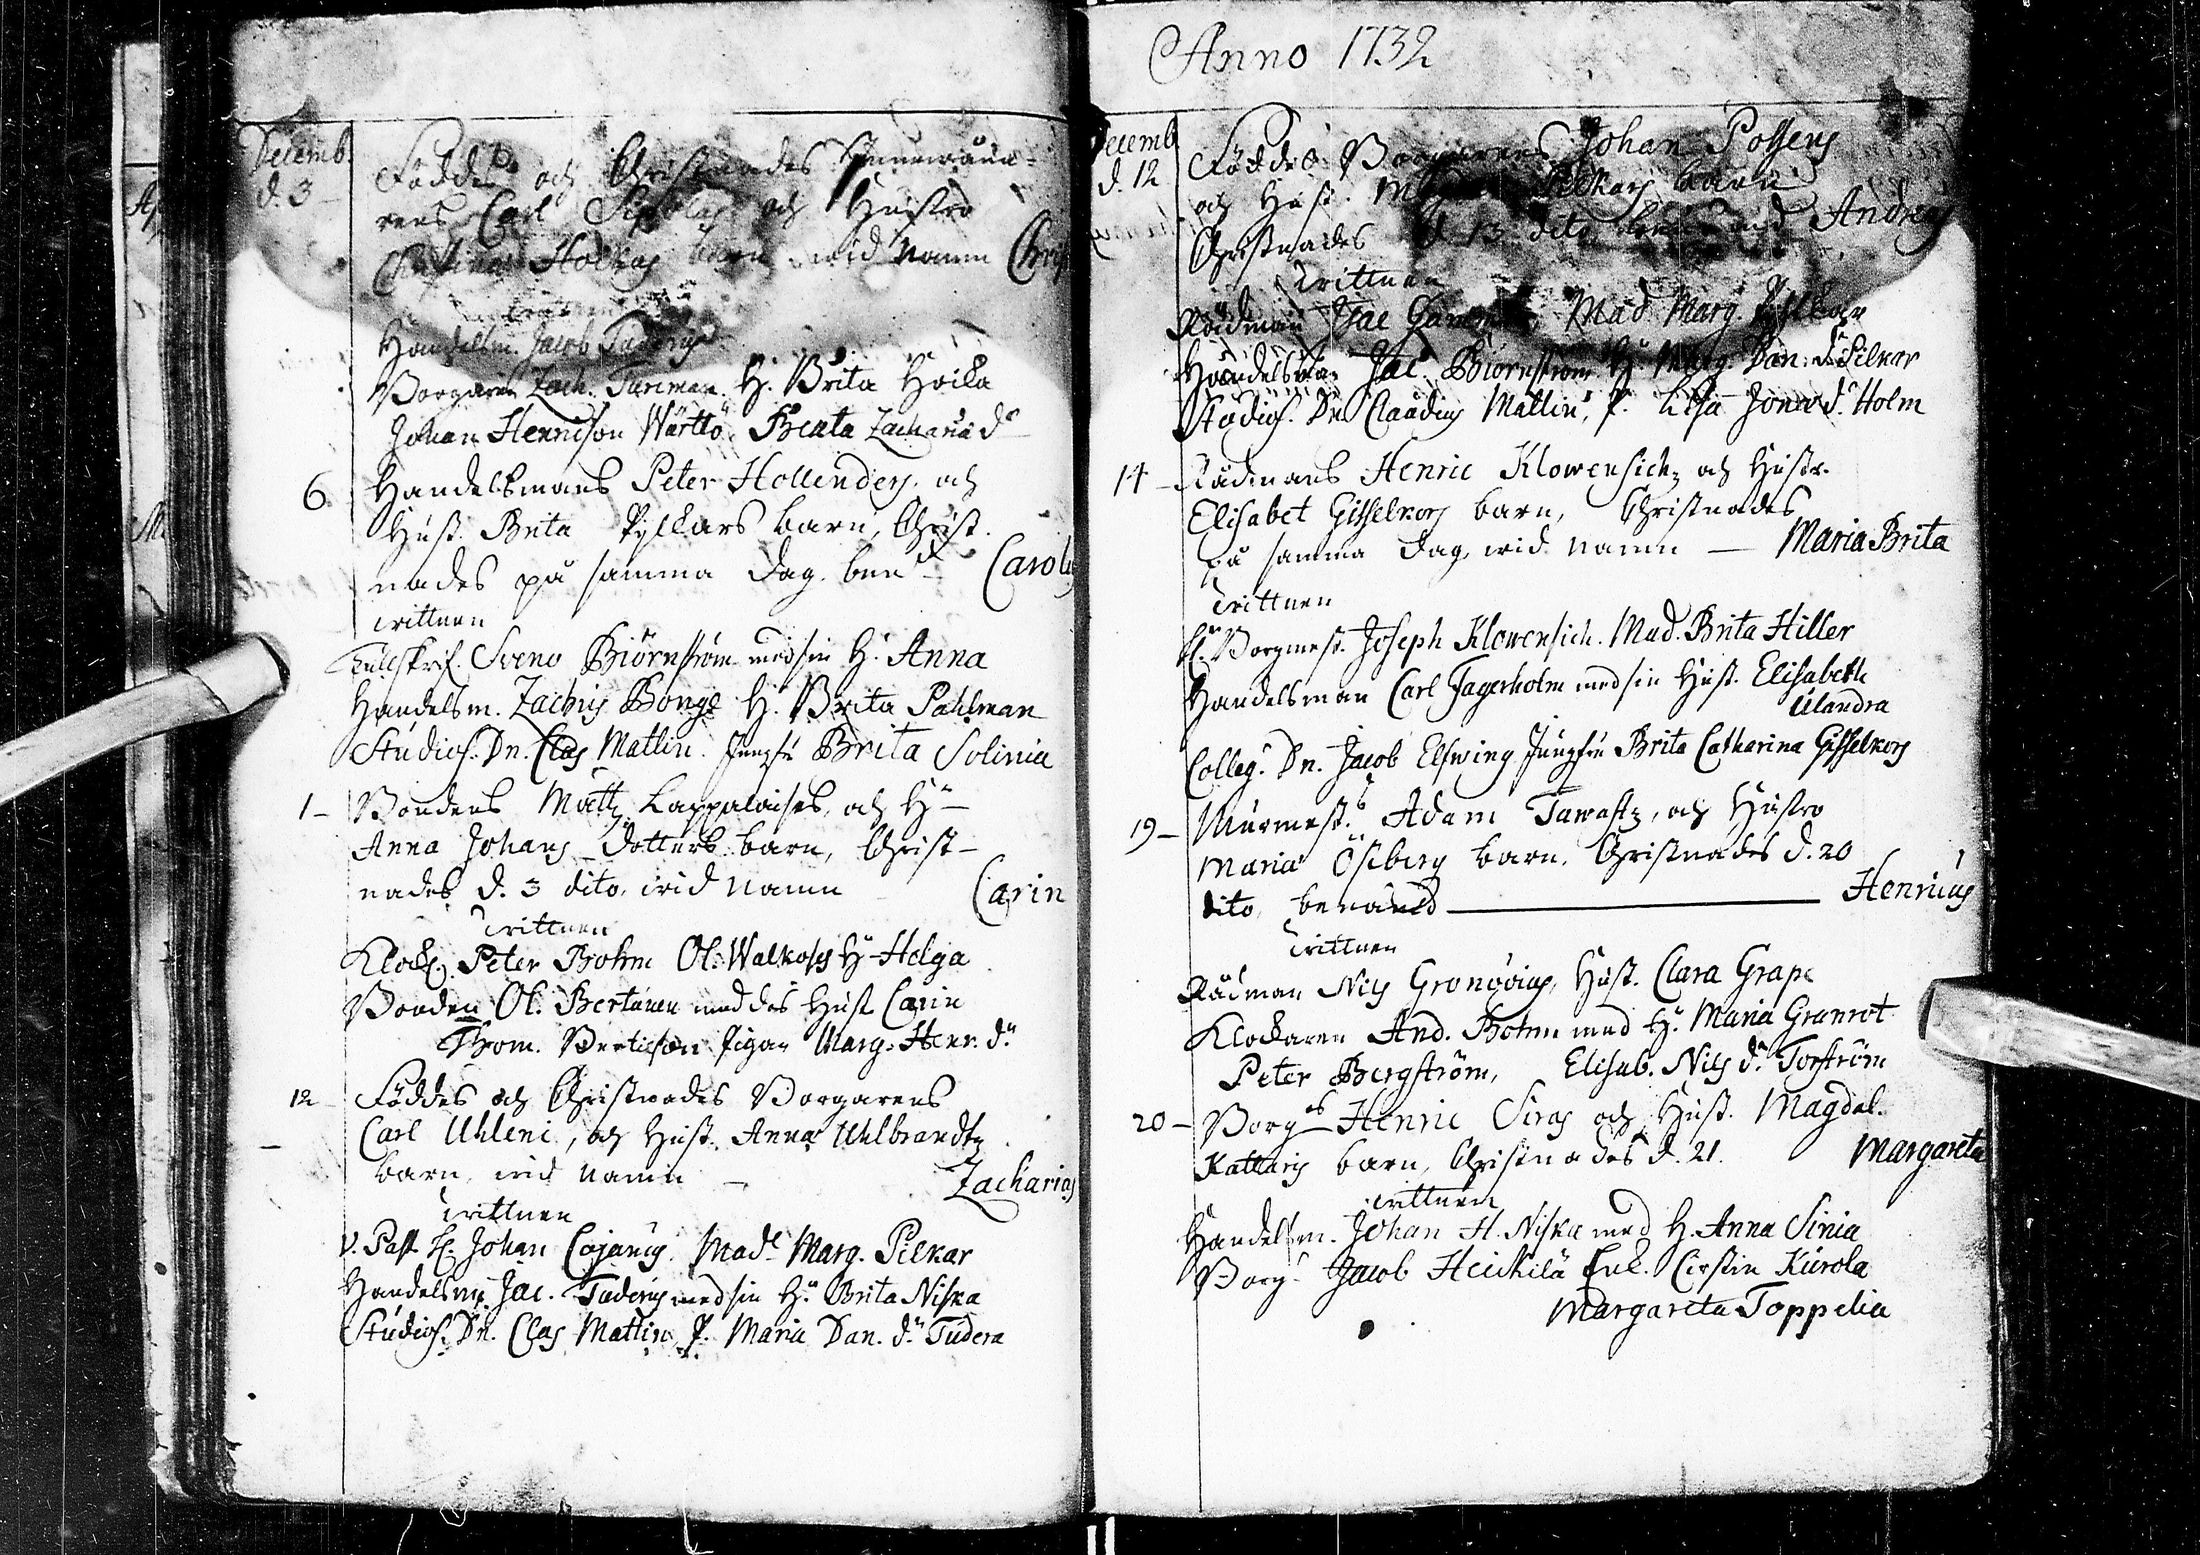 Decemb.
d. 3
Föddes och Christnades
rens Carl och Hustro
Christina Holkas barn wid namn Chris
Handelsm. Jacob Tuderus
Borgaren Zach. Turiman. H. Brita Hoika
Johan Henricson Wärttö. Beata Zachariæ dr
6. Handelsmans Peter Hollenders och
Hust. Brita Pylkars barn, Christ-
nades på samma dag. ben d Carolus
wittnen
Tullskrif. Sveno Biörnström med sin H. Anna
Handelsm. Zachris Bonge H. Brita Pahlman
Studios. Dn. Clas Matlin. Jungfr. Brita Solinia
1 - Bondens Matts Lappalaises, och Hu
Anna Johans dotters barn, Christ-
nades d. 3 dito, wid namn Carin
wittnen
Klock. Peter Bohm Ol. Walkoses Hu Helga
Bonden Ol. Bertunen med des Hust Carin
Thom. Bertilson Pigan Marg. Henr. dr
12 - Föddes och Christnades Borgarens
Carl Uhleni, och Hust. Anna Uhlbrandtz
barn, wid namn - Zacharias
wittnen
V. Past H. Johan Cajanus. Made Marg. Pilkar
Handelsm. Jac. Tuderus med sin Hu Brita Niska
Studios. Dn. Clas Matlin P. Maria Dan. dr Tudera
Anno 1732
Decemb
d. 12
Föddes Borgarens Johan Possens
och Hust. Pilkars barn
Christnades d 13 dito Andreas
wittnen
Rådman Isac Mad Marg. Pylkar
Handelsman Jac. Biornstrom Hu Marg. Dan. dr Pilkar
Studios. Dn Claudius Matlin, P. Lisa Jone dr Holm
14 - Rådmans Henric Klowensichz och Hustr.
Elisabet Gisselkors barn, Christnades
på samma dag, wid namn - Maria Brita
wittnen
H. Borgmest. Joseph Klowensich. Mad. Brita Hiller
Handelsman Carl Fagerholm med sin Hust. Elisabeth
Ulandra
Colleg. Dn. Jacob Elfwing Jungfru Brita Catharina Gisselkors
19 - Murmest.s Adam Tawastz, och Hustro
Maria Östberg barn, Christnades d. 20
dito, benämd Henricus
wittnen
Rådman Nils Gronovius, Hust. Clara Grape
Klockaren And. Bohm med Hu Maria Granrot
Peter Bergström, Elisab. Nils dr Torström
20 - Borgens Henric Siras och Hust. Magdal.
Kattaris barn, Christnades d. 21. Margareta
wittnen
Handelsm. Johan H. Niska med H. Anna Sinia
Borg. Jacob Heickilä Enk. Cirstin Kurola
Margareta Toppelia